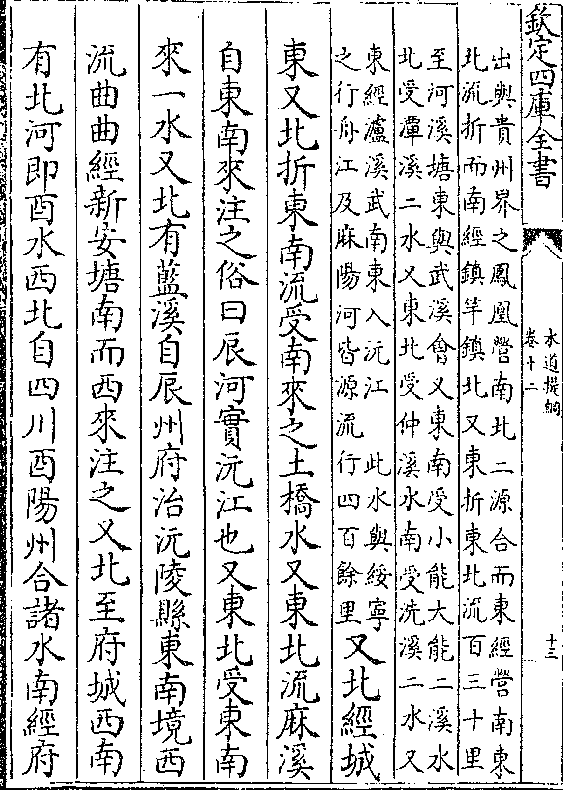 欽定四庫全書
水道提綱
卷十二
十三
出與貴州界之鳳凰營南北二源合而東經營南東
北流折而南經鎮竿鎮北又東折東北流百三十里
至河溪塘東與武溪會又東南受小能大能二溪水
北受潭溪二水又東北受仲溪水南受洗溪二水又
東經瀘溪武南東入沅江　此水與綏寧
之行舟江及麻陽河皆源流行四百餘里
又北經城
東又北折東南流受南來之土橋水又東北流麻溪
自東南來注之俗曰辰河實沅江也又東北受東南
來一水又北有藍溪自辰州府治沅陵縣東南境西
流曲曲經新安塘南而西來注之又北至府城西南
有北河即酉水西北自四川酉陽州合諸水南經府